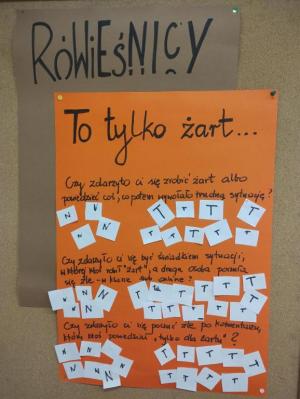 RÓWIEŚNICY
To tylko żart...
Czy zdarzyło ci się zrobić żart albo
powiedzieć coś, co potem wywołało trudną sytuację?
N N N N N T T T T T T T T
Czy zdarzyło ci się być świadkiem sytuacji,
w której ktoś robił "żart", a druga osoba poczuła
się źle - w klasie lub online?
N N N N N T T T T T T T T
Czy zdarzyło ci się poczuć źle po komentarzu,
który ktoś powiedział "tylko dla żartu"?
N N N N N T T T T T T T T